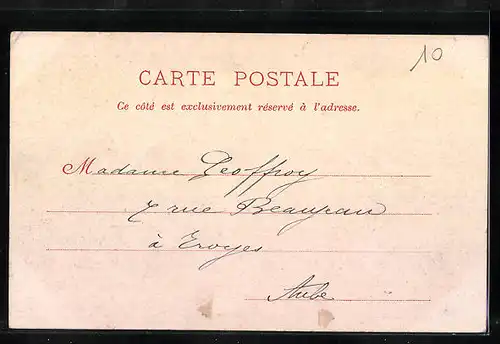 10
CARTE POSTALE
Ce côté est exclusivement réservé à l'adresse.
Madame Geoffroy
7 rue Beaujeau
à Troyes
Aube